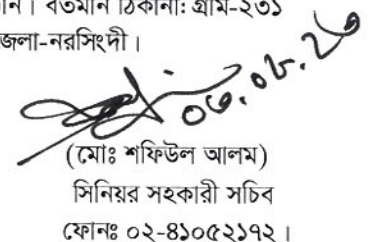 ন। বর্তমান ঠিকানা: গ্রাম-২৩১
জেলা-নরসিংদী।
০৬.০৮.২৬
(মোঃ শফিউল আলম)
সিনিয়র সহকারী সচিব
ফোনঃ ০২-৪১০৫২১৭২।